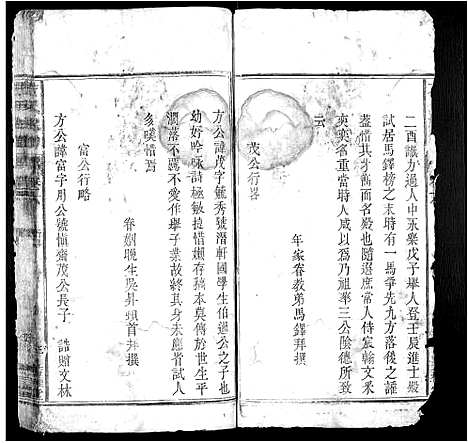 二酉議方過人中永樂戊子舉人登壬辰進士殿
試居馬鐸榜之末時有一馬爭先九方落後之謠
蓋惜其才舊而名殿也隨選庶當人侍宸翰文釆
奕奕名重當時人咸以為乃祖華三公陰德所致
云
年家眷教弟馬鐸拜撰
茂公行畧
方公諱茂字毓秀號潛軒國學生伯過公之子也
幼好吟咏詩極敏捷惜嬾存稿大莫傳於世生平
灑落不羈不愛作舉子業故終其身未應者試人
多暎惜焉
眷姻晚生吳昇頓首拜撰
富公行略
方公諱富字用公號慎齋茂公長子 誥贈文林